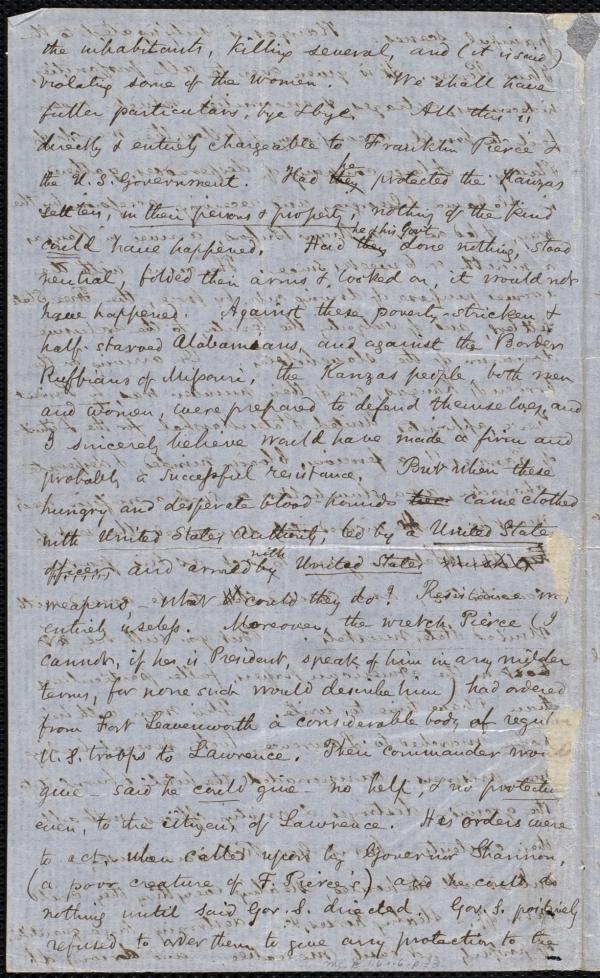 the inhabitants, killing several, and (it is said)
violating some of the women. We shall have
fuller particulars, bye & bye. All this is
directly & entirely chargeable to Franklin Pierce &
the U.S. Government. Had he they protected the Kanzas
settlers, in their persons & property, nothing of the kind
could have happened. Had he & his Govt. they done nothing, stood
neutral, folded their arms & looked on, it would not
have happened. Against these poverty-stricken &
half-starved Alabamians, and against the Border
Ruffians of Missouri, the Kanzas people, both men
and women, were prepared to defend themselves, and
I sincerely believe would have made a firm and
probably a successful resistance. But when these
hungry and desperate blood-hounds came clothed
with United States Authority, led by a United States
officer, and armed by with United States
weapons – what could they do? Resistance was
entirely useless. Moreover, the wretch Pierce (I
cannot, if he is President, speak of him in any milder
terms, for none such would describe him) had ordered
from Fort Leavenworth a considerable body of regular
U.S. troops to Lawrence. Their commander would
give – said he could give – no help, & no protection
even, to the citizens of Lawrence. His orders were
to act, when called upon by Governor Shannon,
(a poor creature of F. Pierce's) and he could do
nothing until said Gov. S. directed. Gov. S. positively
refused to order them to give any protection to the